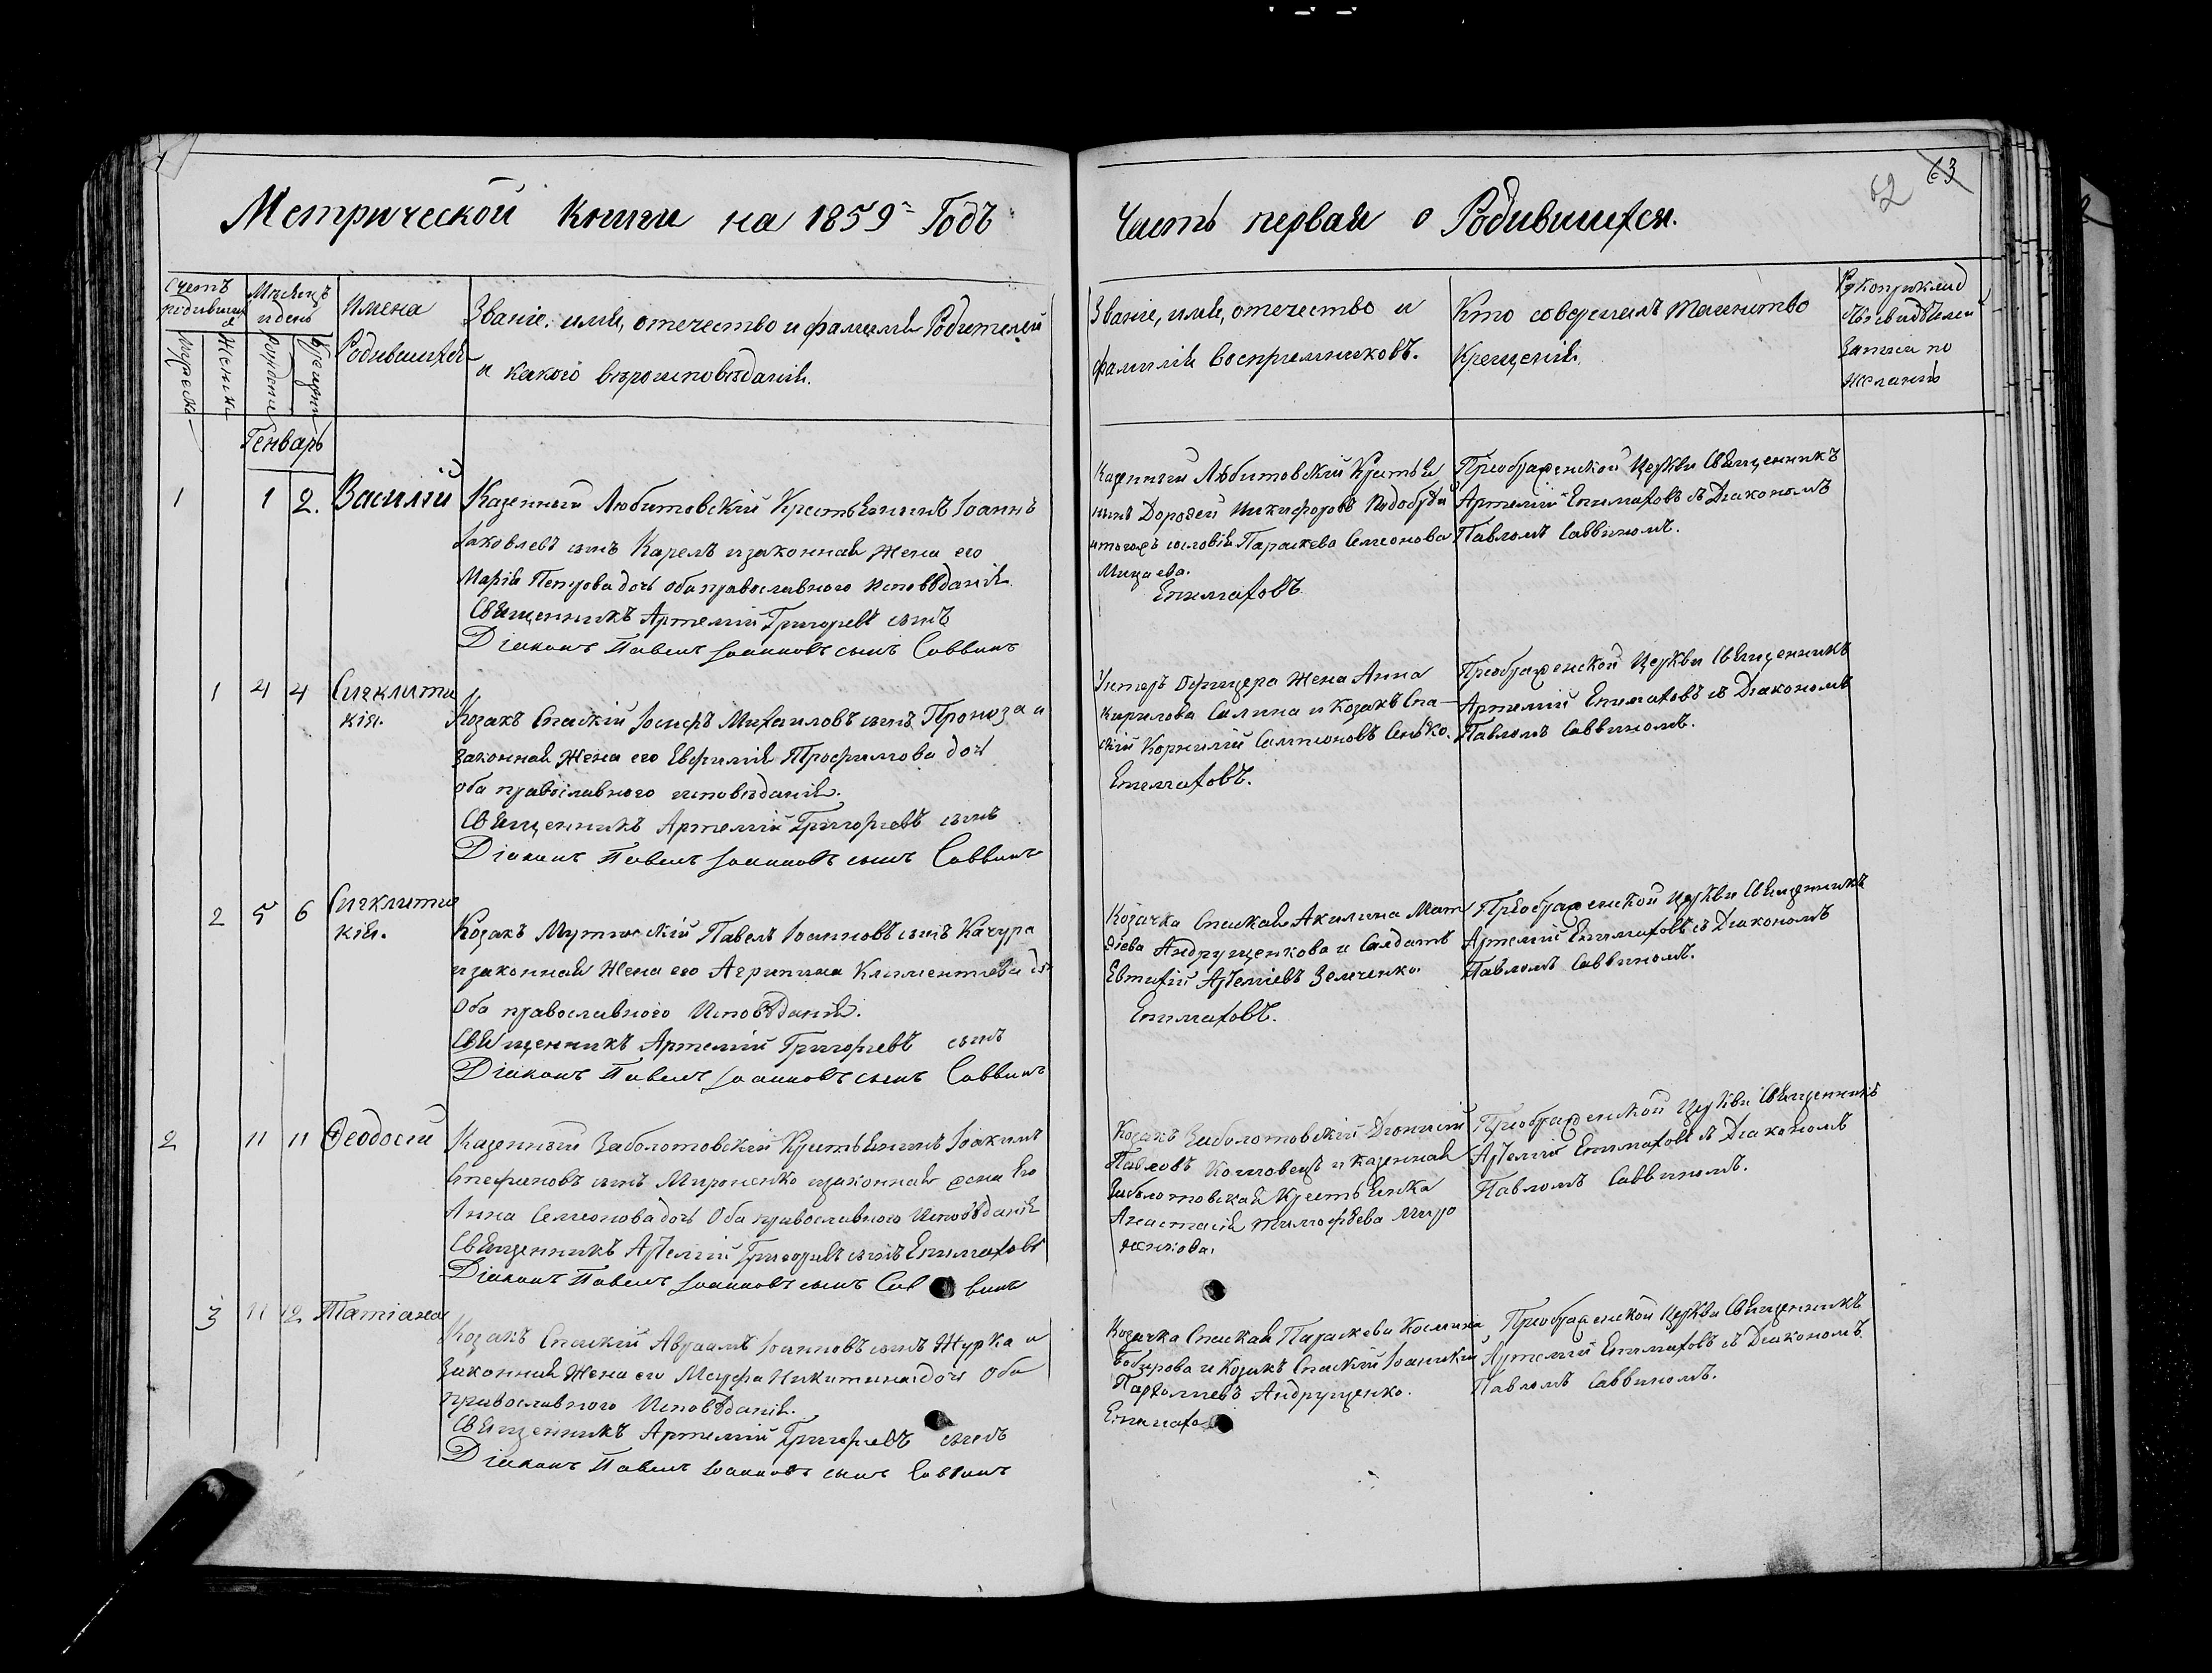 62 63
Метрической книги на 1859й Годъ
Часть первая о Родившихся.
Счетъ родившихся
Мужеска
Женска
Мѣсяцъ и день
рожденія
крещенія
Имена Родившихся
Званіе, имя, отечество и фамилія Родителей
и какого вѣроисповѣданія.
Званіе, имя, отечество и
фамилія воспріемниковъ.
Кто совершалъ таинство
Крещенія.
Рукоприклад
свидѣтелей
записи по
желанію
Генварь
1 1 2. Василій
Казенный Любитовскій Крестьянинъ Іоаннъ
Іаковлевъ сынъ Карелъ и законная жена его
Марія Петрова дочь оба православного исповѣданія.
Священникъ Артемій Григорьевъ сынъ
Діаконъ Павелъ Іоанновъ сынъ Саввинъ
Казенный Любитовскій Крестья
нинъ Дороѳей Никифоровъ
сословія Параскева Семеонова
Епимаховъ.
Преображенской Церкви Священникъ
Артемій Епимаховъ съ Діакономъ
Павломъ Саввиномъ.
1 4 4 Сигклити
кія.
Козакъ Спаскій Іосифъ Михаиловъ сынъ Проноза и
законная жена его Евфимія Трофимова дочь
оба православного исповѣданія.
Священникъ Артемій Григорьевъ сынъ
Діаконъ Павелъ Іоанновъ сынъ Саввинъ
Унтеръ Офицера жена Анна
Кирилова Салина и козакъ Спа-
скій Корнилій Сампсоновъ Сенько.
Епимаховъ.
Преображенской Церкви Священникъ
Артемій Епимаховъ съ Діакономъ
Павломъ Саввиномъ.
2 5 6 Сигклити
кія.
Козакъ Мутинскій Павелъ Іоанновъ сынъ Качура
и законная жена его Агрипина Климентиева дочь
Оба православного Исповѣданія.
Священникъ Артемій Григорьевъ сынъ
Діаконъ Павелъ Іоанновъ сынъ Саввинъ
Козачка Спаская Акилина Мат
ѳіева Андрущенкова и Салдатъ
Евтихій Артеміевъ Земченко.
Епимаховъ.
Преображенской Церкви Священникъ
Артемій Епимаховъ съ Діакономъ
Павломъ Саввиномъ.
2 11 11 Ѳеодосій
Казенный Заболотовскій Крестьянинъ Іоакимъ
Стефановъ сынъ Мироненко и законная жена его
Анна Семеонова дочь Оба православного Исповѣданія
Священникъ Артемій Григорьевъ сынъ Епимаховъ
Діаконъ Павелъ Іоанновъ сынъ Саввинъ
Козакъ Заболотовскій Діонисій
Павловъ и казенная
Заболотовская Крестьянка
Анастасія Тимофѣева Миро
ненкова.
Преображенской Церкви Священникъ
Артемій Епимаховъ съ Діакономъ
Павломъ Саввиномъ.
3 11 12 Татіана
Козакъ Спаскій Авраамъ Іоанновъ сынъ Журка и
законная жена его Марфа Никитина дочь Оба
православного Исповѣданія.
Священникъ Артемій Григорьевъ сынъ
Діаконъ Павелъ Іоанновъ сынъ Саввинъ
Козачка Спаская Параскева Космина
Бобырова и Козакъ Спаскій Іоаникій
Парѳеміевъ Андрущенко.
Епимахо
Преображенской Церкви Священникъ
Артемій Епимаховъ съ Діакономъ
Павломъ Саввиномъ.